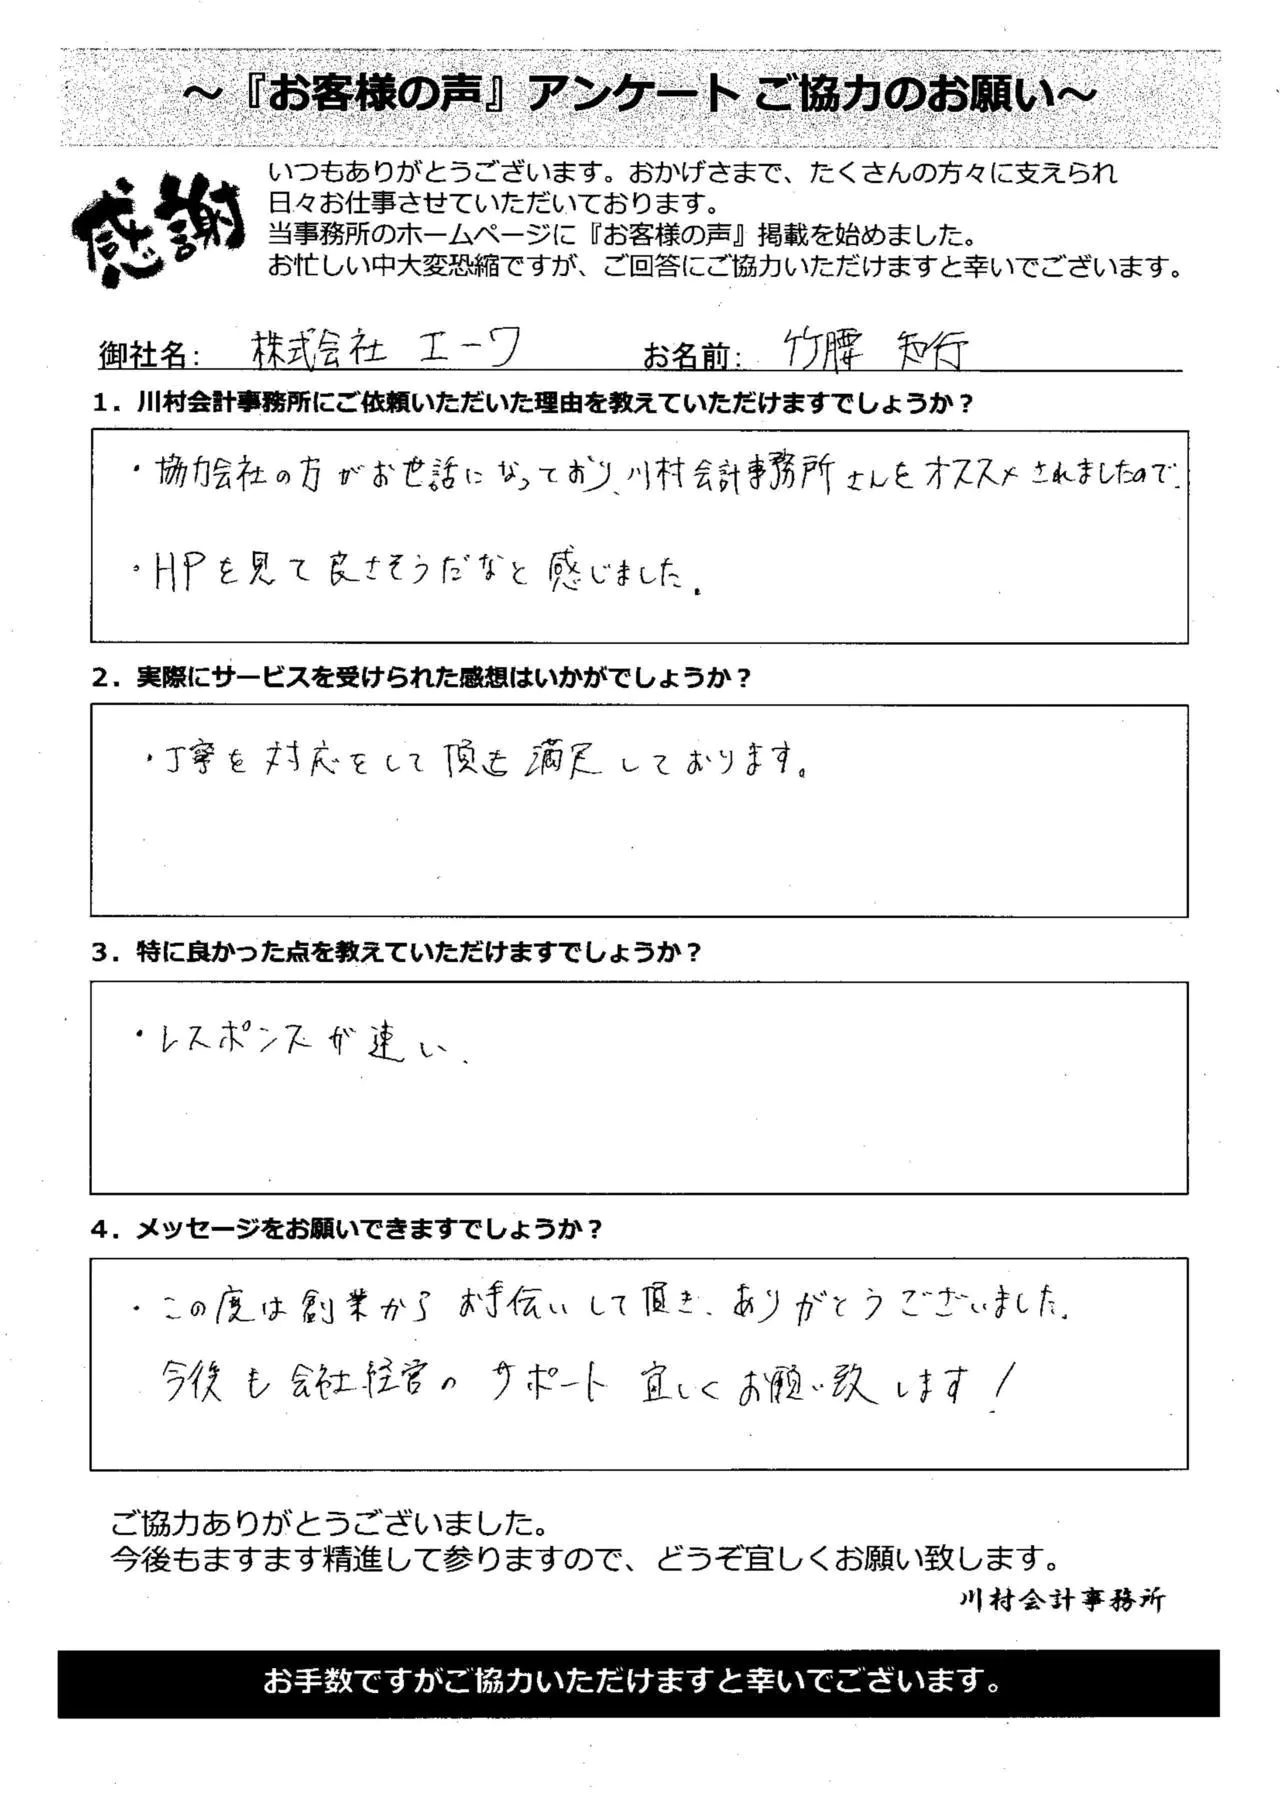 ～『お客様の声』アンケート ご協力のお願い～
感謝
いつもありがとうございます。おかげさまで、たくさんの方々に支えられ
日々お仕事させていただいております。
当事務所のホームページに『お客様の声』掲載を始めました。
お忙しい中大変恐縮ですが、ご回答にご協力いただけますと幸いでございます。
御社名： 株式会社 エーワ お名前： 竹腰 知行
1．川村会計事務所にご依頼いただいた理由を教えていただけますでしょうか？
・協力会社の方がお世話になっており、川村会計事務所さんをオススメされましたので。
・HPを見て良さそうだなと感じました。
2．実際にサービスを受けられた感想はいかがでしょうか？
・丁寧な対応をして頂き満足しております。
3．特に良かった点を教えていただけますでしょうか？
・レスポンスが速い。
4．メッセージをお願いできますでしょうか？
・この度は創業からお手伝いして頂き、ありがとうございました。
今後も会社経営のサポート宜しくお願い致します！
ご協力ありがとうございました。
今後もますます精進して参りますので、どうぞ宜しくお願い致します。
川村会計事務所
お手数ですがご協力いただけますと幸いでございます。